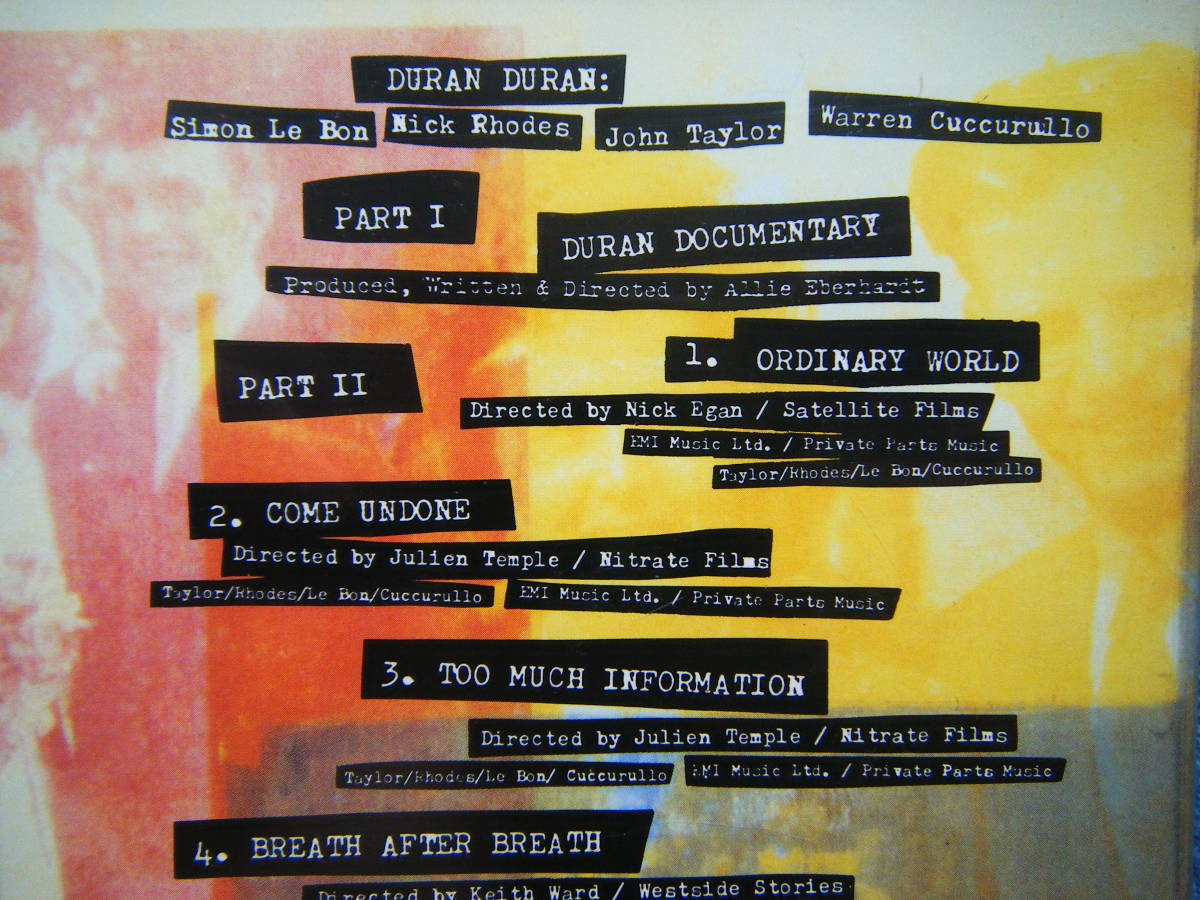 DURAN DURAN:
Simon Le Bon Nick Rhodes John Taylor Warren Cuccurullo
PART I
DURAN DOCUMENTARY
Produced, Written & Directed by Allie Eberhardt
PART II
1. ORDINARY WORLD
Directed by Nick Egan / Satellite Films
EMI Music Ltd. / Private Parts Music
Taylor/Rhodes/Le Bon/Cuccurullo
2. COME UNDONE
Directed by Julien Temple / Nitrate Films
Taylor/Rhodes/Le Bon/Cuccurullo EMI Music Ltd. / Private Parts Music
3. TOO MUCH INFORMATION
Directed by Julien Temple / Nitrate Films
Taylor/Rhodes/Le Bon/ Cuccurullo EMI Music Ltd. / Private Parts Music
4. BREATH AFTER BREATH
Directed by Keith Ward / Westside Stories